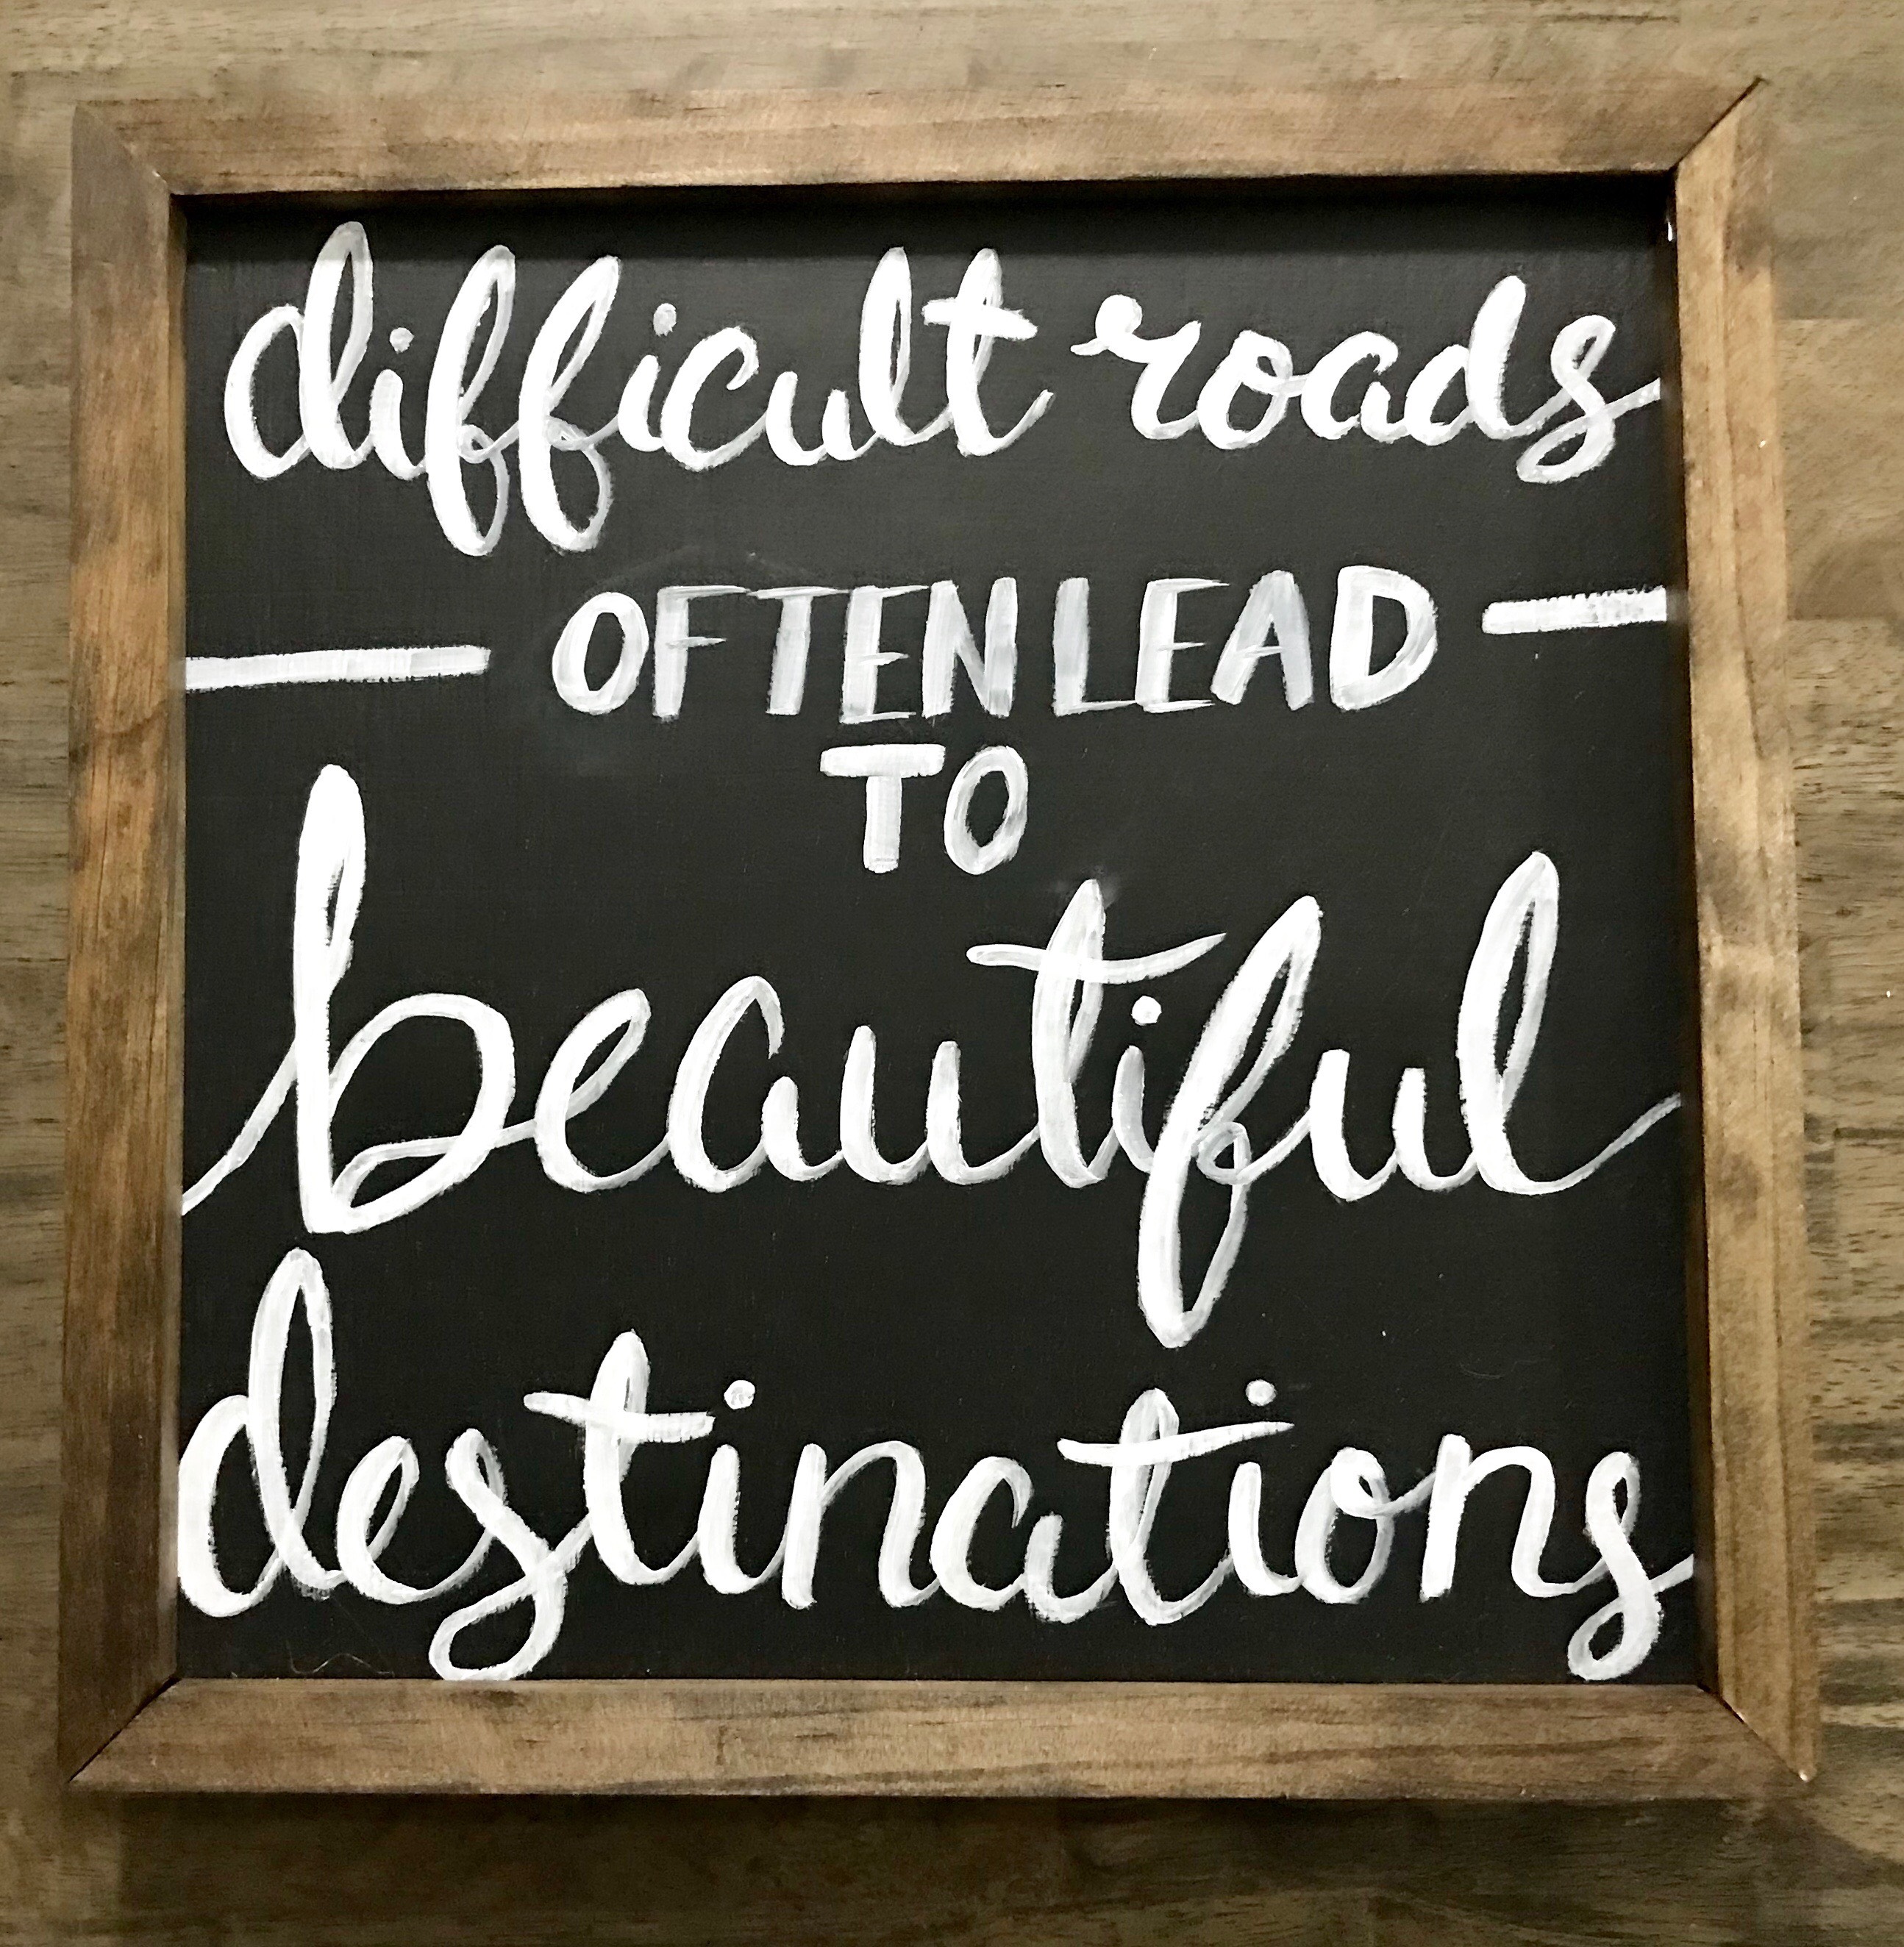 difficult roads
OFTEN LEAD
TO
beautiful
destinations